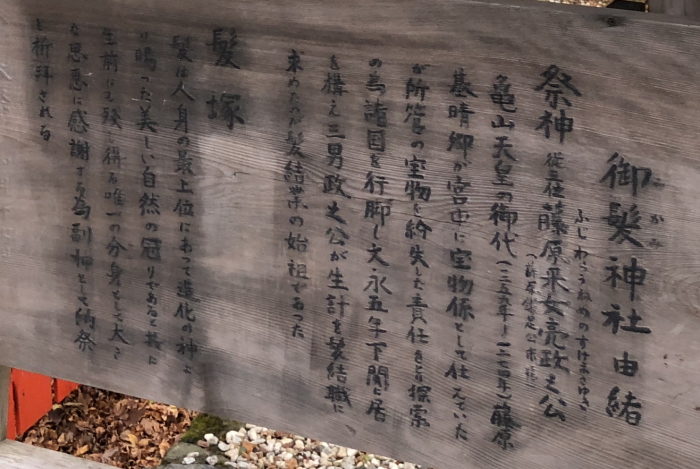 御髪神社由緒
みかみ
祭神 従五位藤原采女亮政之公
ふじわらうねめのすけまさゆき
亀山天皇の御代(一二五九年ー一二七四年)藤原
基晴卿が宮中に宝物係として仕えていた
が所管の宝物を紛失した責任をとり探索
の為諸国を行脚し文永五年下関に居
を構え三男政之公が生計を髪結職に
求めたのが髪結業の始祖であった
髪塚
髪は人身の最上位にあって造化の神より
賜った美しい自然の冠りであると共に
生前にも残し得る唯一の分身として大き
な恩恵に感謝する為副神として納祭
し祈拝される